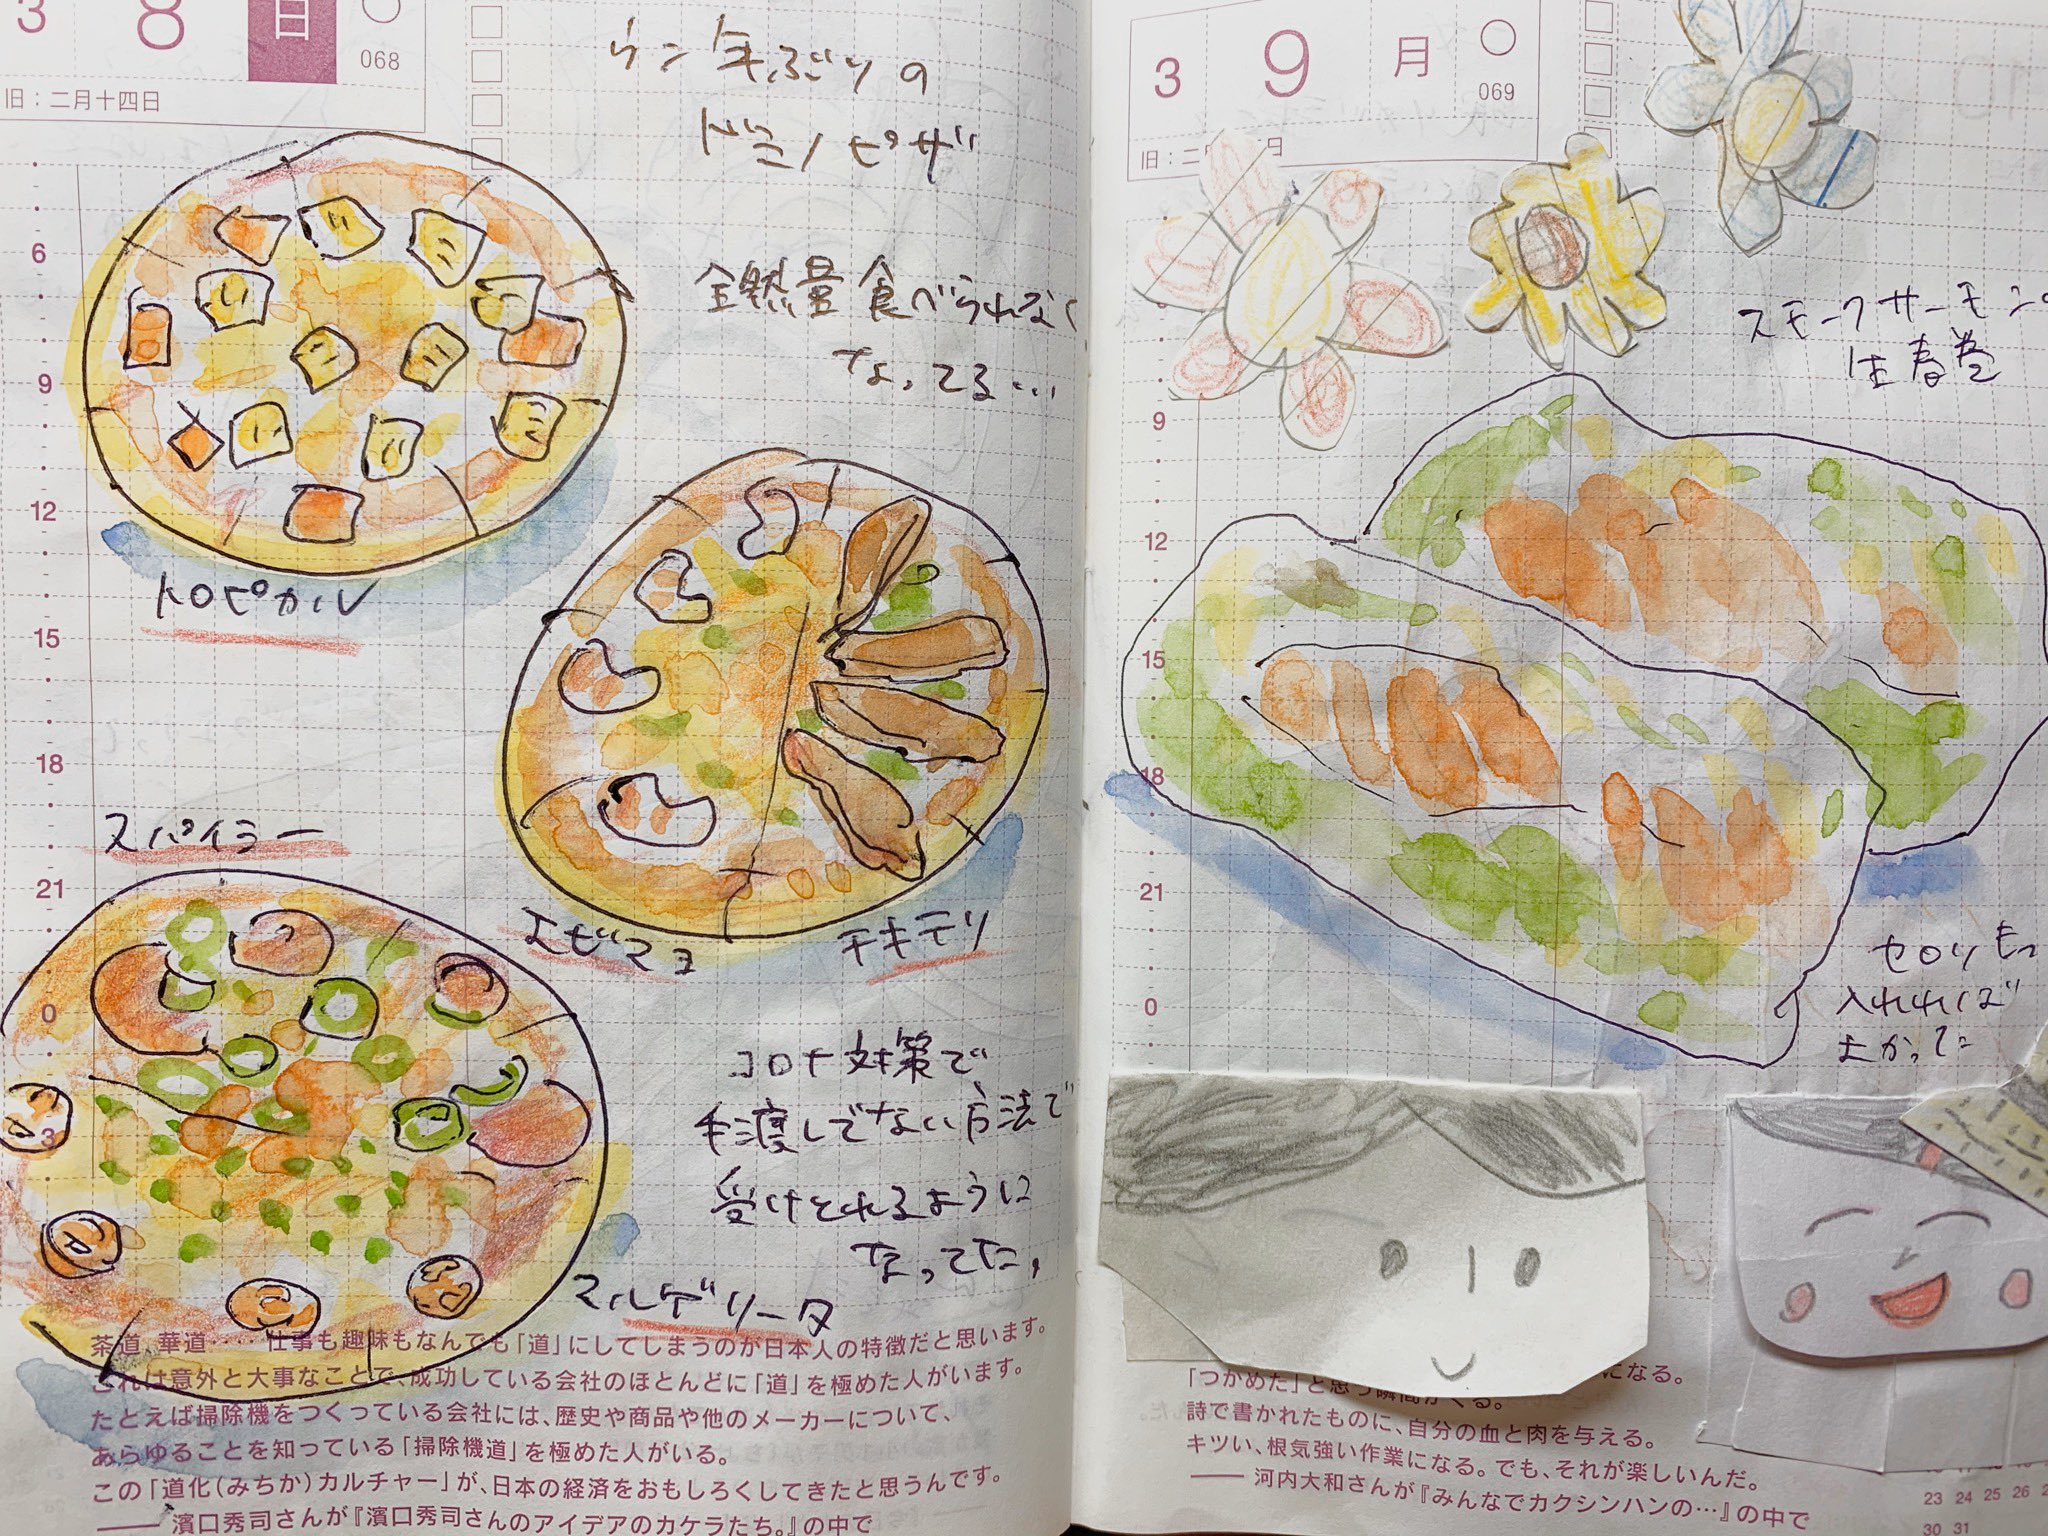 3 8 日
068
旧：二月十四日
ウン年ぶりの
ドミノピザ
全然量食べられなく
なってる…
トロピカル
スパイシー
エビマヨ
チキテリ
マルゲリータ
コロナ対策で
手渡しでない方法で
受けとれるように
なってた,
6
9
12
15
18
21
0
3
茶道、華道‥‥仕事も趣味もなんでも「道」にしてしまうのが日本人の特徴だと思います。
これは意外と大事なことで、成功している会社のほとんどに「道」を極めた人がいます。
たとえば掃除機をつくっている会社には、歴史や商品や他のメーカーについて、
あらゆることを知っている「掃除機道」を極めた人がいる。
この「道化(みちか)カルチャー」が、日本の経済をおもしろくしてきたと思うんです。
── 濱口秀司さんが『濱口秀司さんのアイデアのカケラたち。』の中で
3 9 月
069
旧：二 日
スモークサーモンの
生春巻
9
12
15
18
21
0
セロリもっ
入れれば
よかった
になる。
「つかめた」と思う瞬間がくる。
詩で書かれたものに、自分の血と肉を与える。
キツい、根気強い作業になる。でも、それが楽しいんだ。
── 河内大和さんが『みんなでカクシンハンの…』の中で
23 24 25 26
30 31